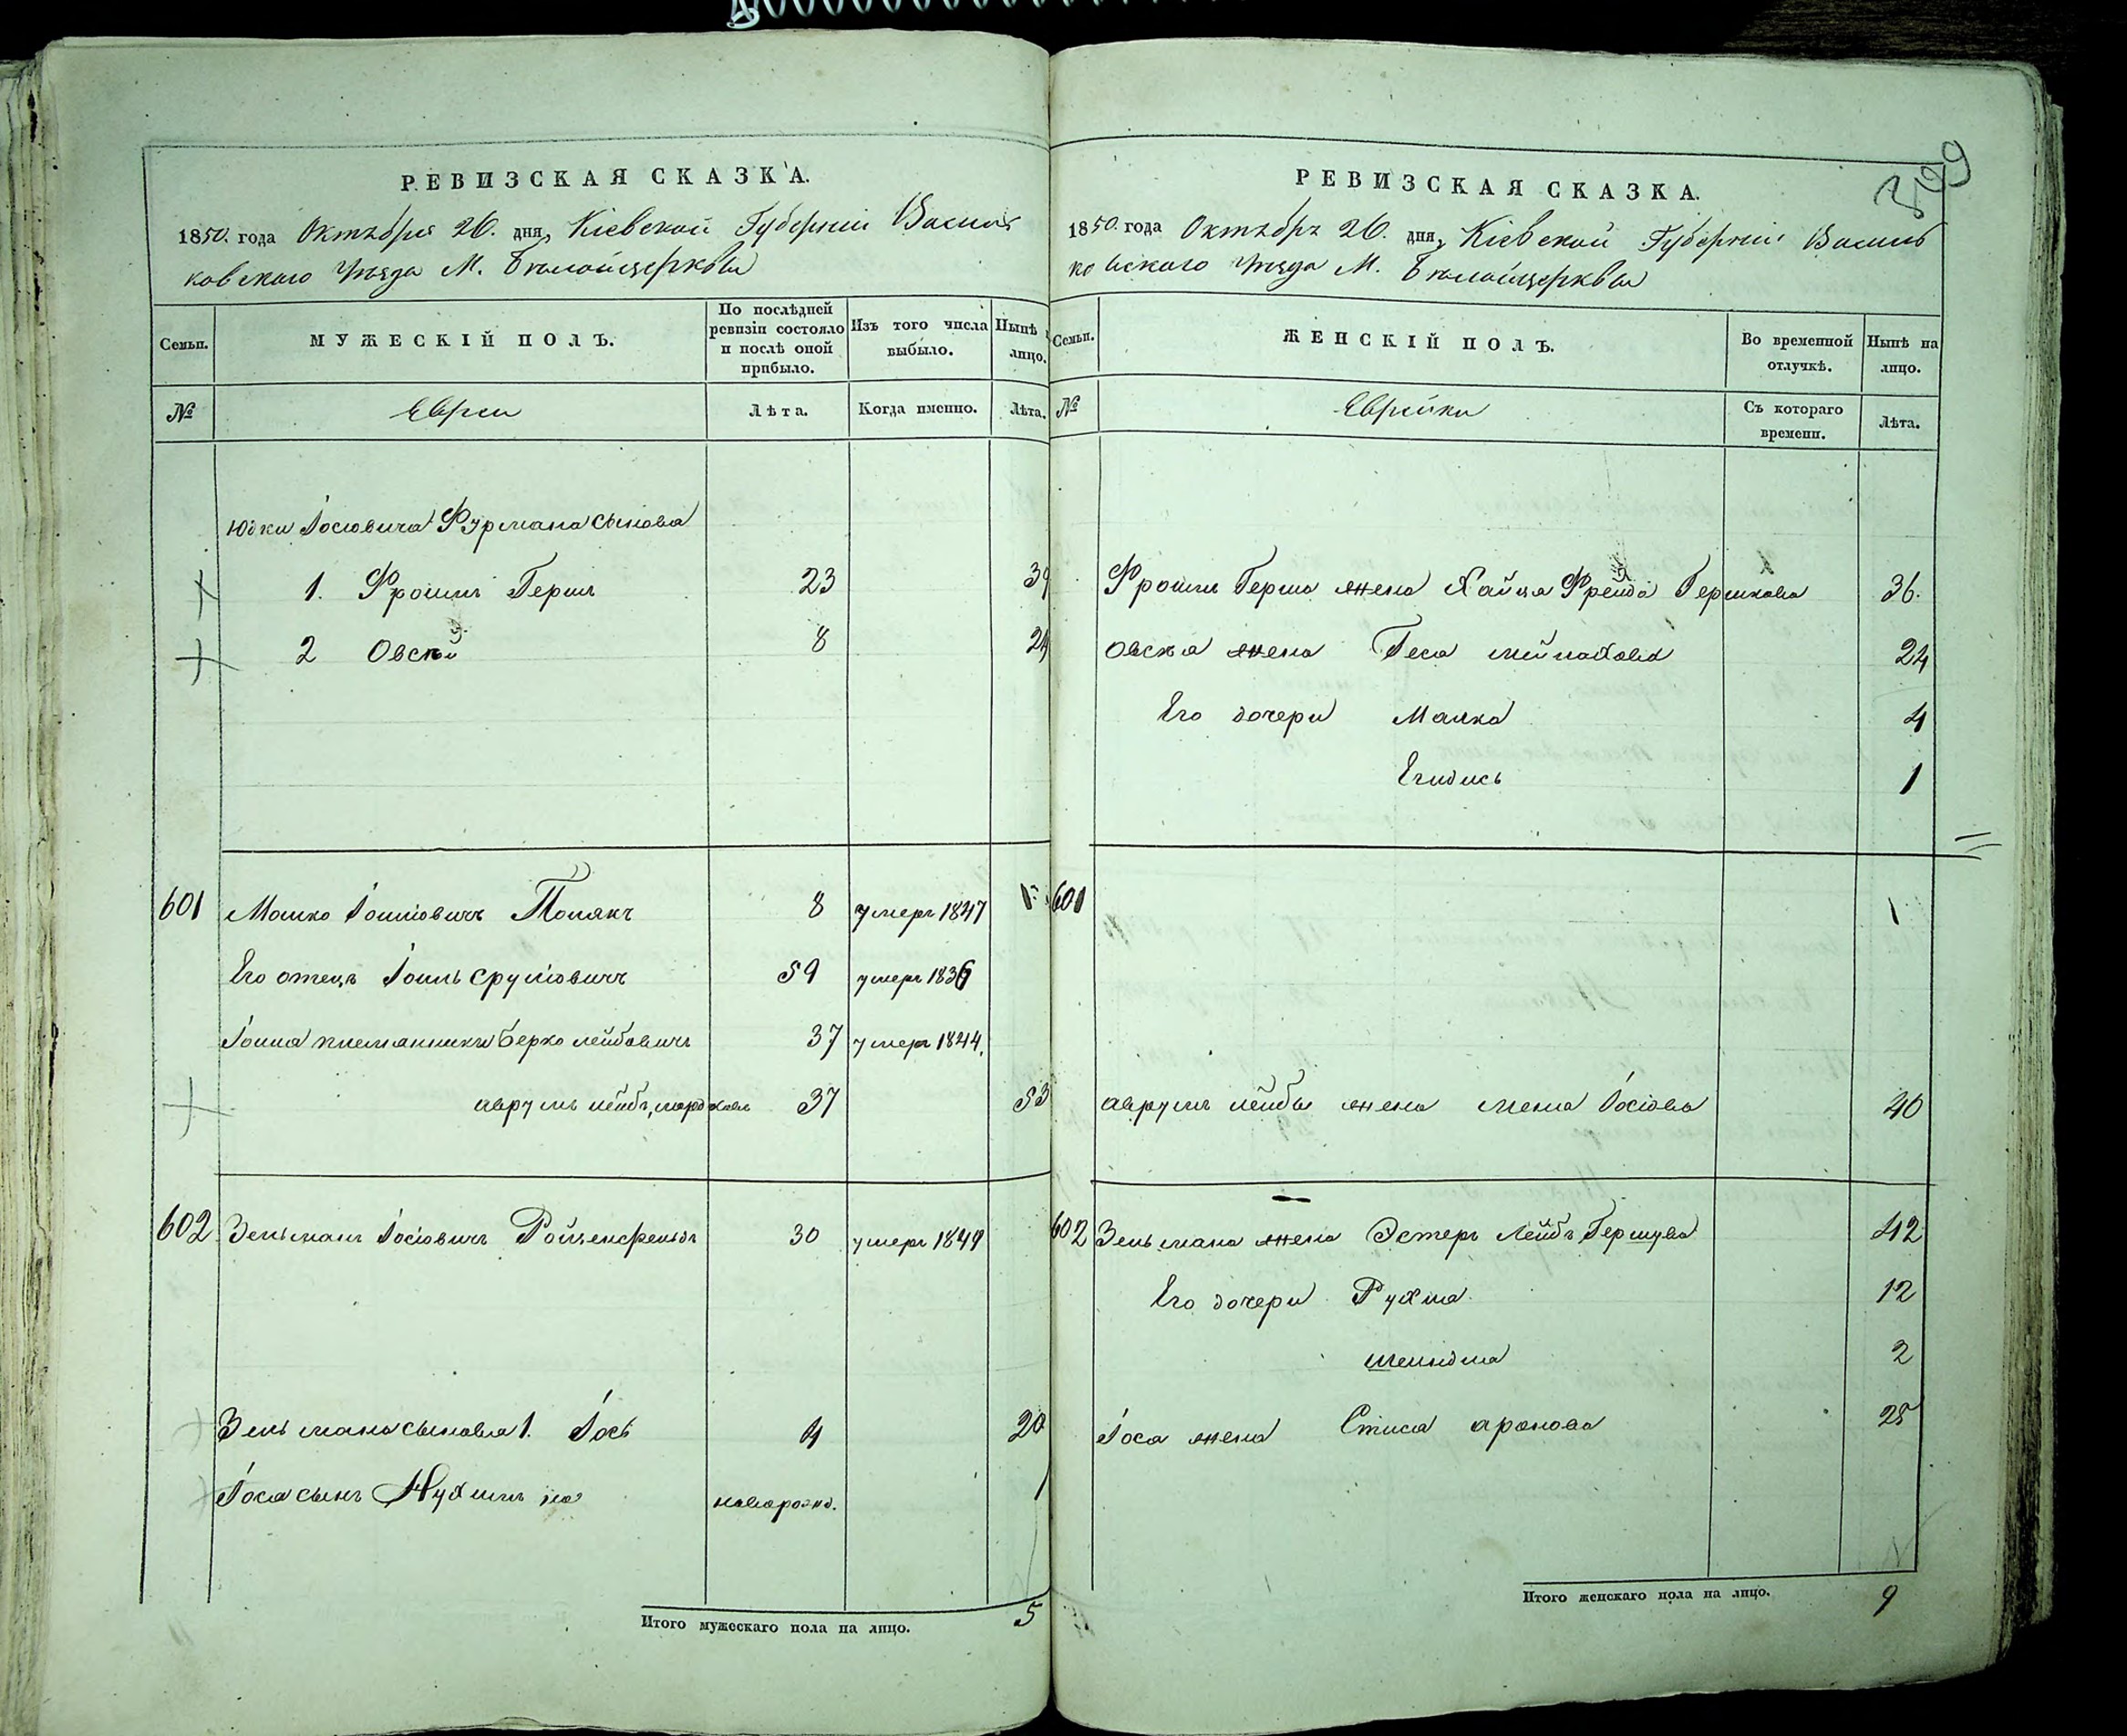 РЕВИЗСКАЯ СКАЗКА.
1850. года Октября 26. дня, Кіевской Губерніи Василь
ковского Уѣзда М. Бѣлойцеркви
Семьи.
МУЖЕСКІЙ ПОЛЪ.
По послѣдней ревизіи состояло и послѣ оной прибыло.
Изъ того числа выбыло.
Нынѣ лицо.
№
Евреи
Лѣта.
Когда именно.
Лѣта.
Юдки Іосіовича Фурмана сыновья
1. Фроимъ Гершъ 23 39
2 Овсѣй 8 24
601 Мошко Іоиліовичъ Полякъ 8 умеръ 1847
Его отецъ Іоиль Сруліовичъ 59 умеръ 1836
Іоиля племянники Берко Лейбовичъ 37 умеръ 1844.
Аврумъ Лейбъ 37 53
602 Зельманъ Іосіовичъ Ройзенфельдъ 30 умеръ 1849
Зельмана сыновья 1. Іось 4 20
Іося сынъ Нухимъ новорожд. 1
Итого мужескаго пола на лицо. 5
РЕВИЗСКАЯ СКАЗКА.
1850. года Октября 26. дня, Кіевской Губерніи Василь
ковского Уѣзда М. Бѣлойцеркви
Семьи.
ЖЕНСКІЙ ПОЛЪ.
Во временной отлучкѣ.
Нынѣ на лицо.
№
Еврейки
Съ котораго времени.
Лѣта.
Фроимъ Герша жена Хайця Фрейда Гершкова 36.
Овсѣя жена 24
Его дочери Малка 4
1
601
Аврумъ Лейбы жена Іосіова 40
602 Зельмана жена Эстеръ Лейбъ Гершува 42
Его дочери Рухля 12
Шейндля 2
Іося жена Аронова 25
Итого женскаго пола на лицо. 9